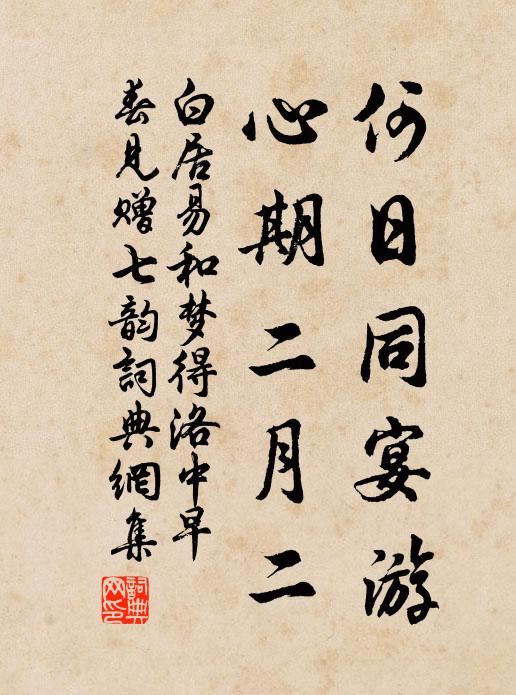 何日同宴游
心期二月二
白居易和梦得洛中早
春见赠七韵詞典網集
詞典
网印